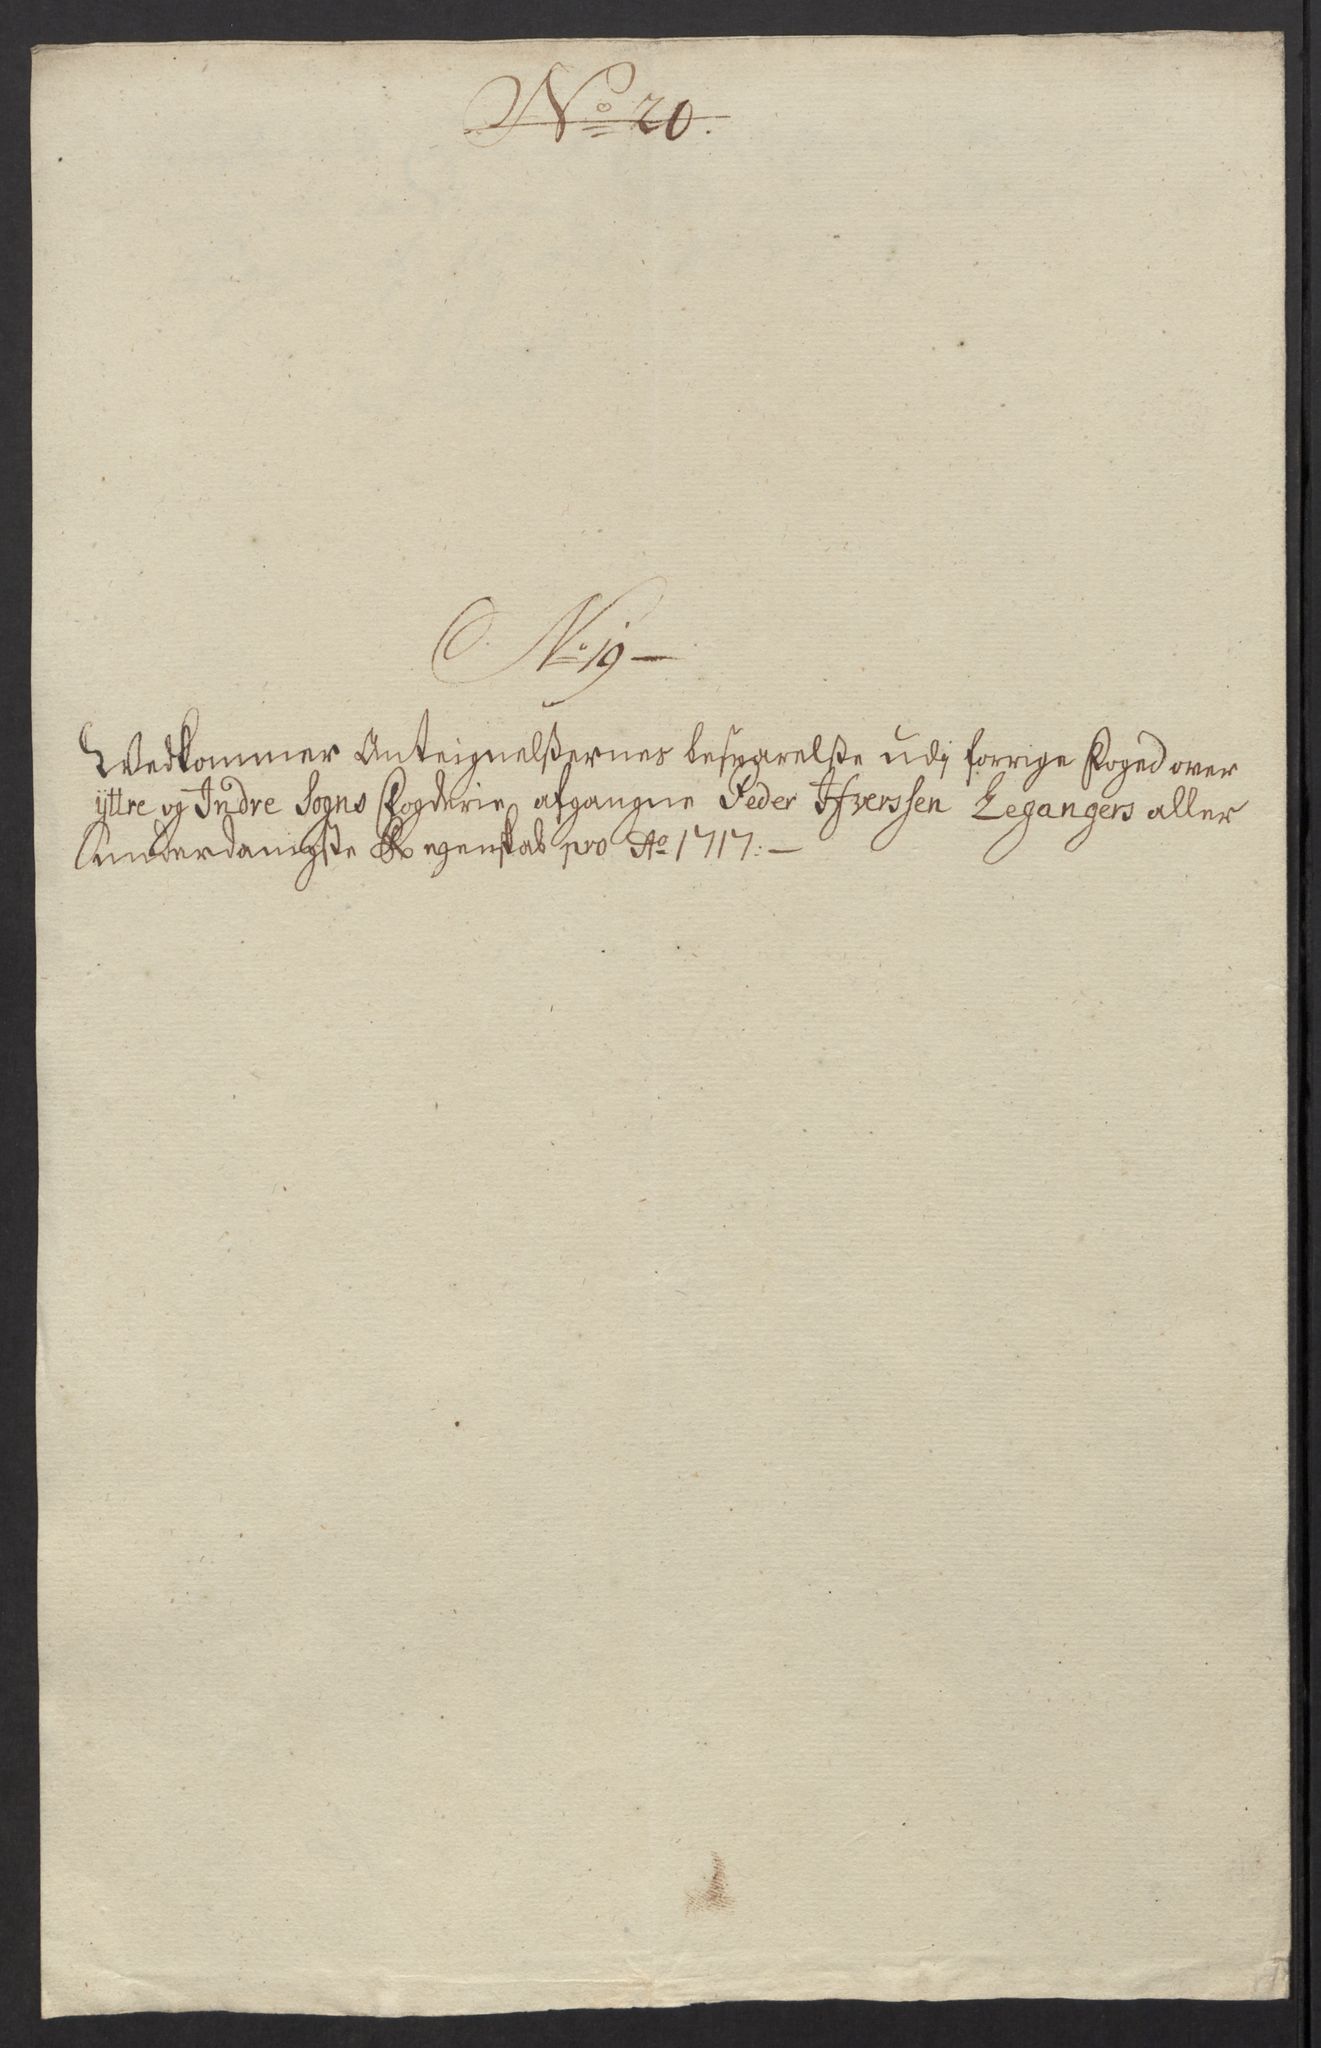 No 20.
No 19 —
Wedkommer Anteignelßernes besvarelße udj forrige Foged over
ÿttre og Indre Sogns Fogderie, afgangne Peder Ifverssen Legangers aller
underdanigste Regenskab pro Ao 1717: —